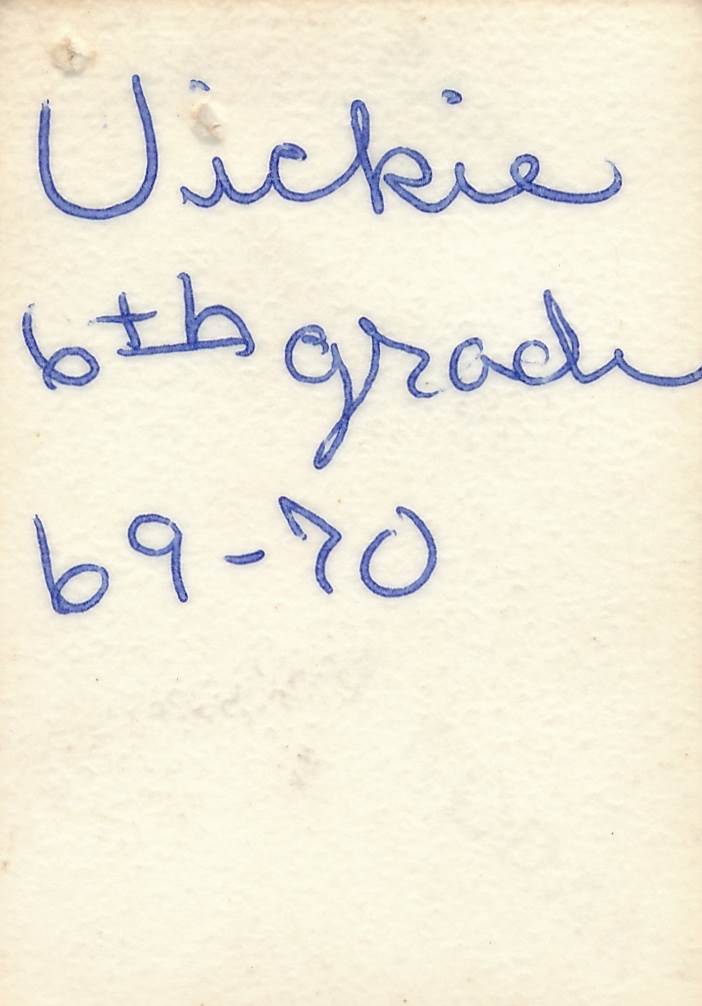 Vickie
6th grade
69-70